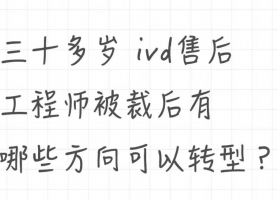 三十多岁 ivd售后
工程师被裁后有
哪些方向可以转型？